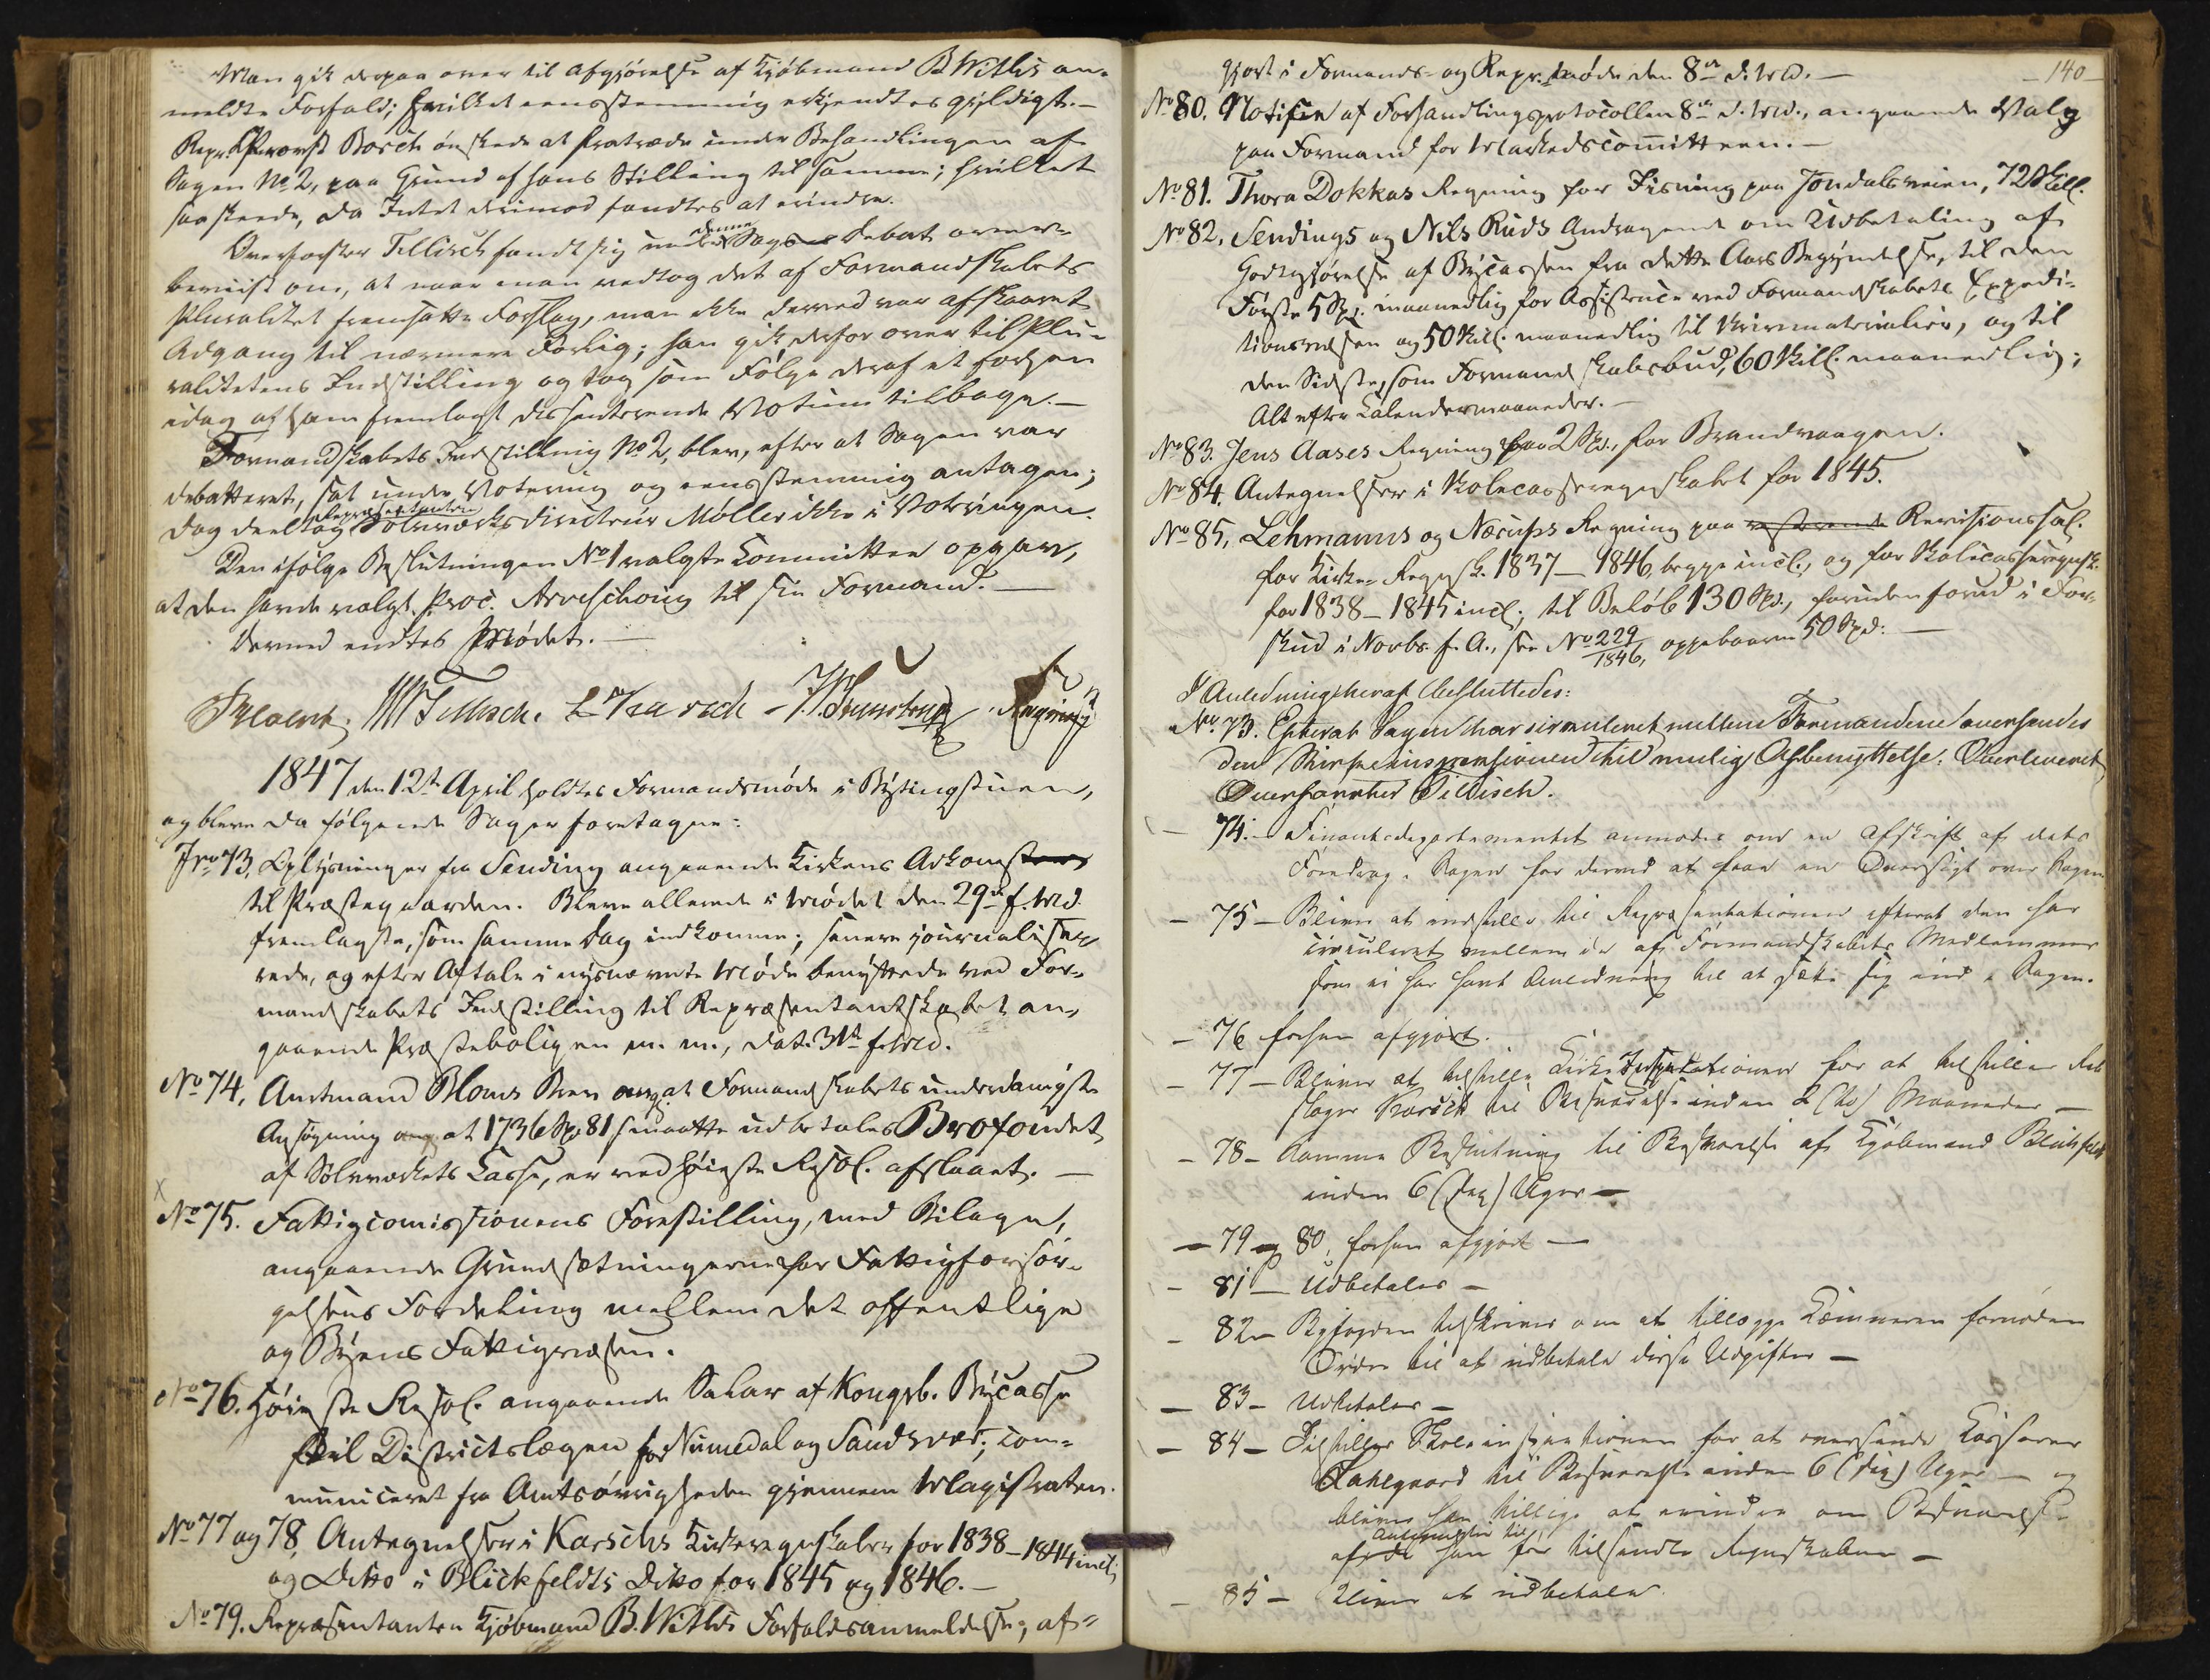 Man gik derpaa over til Afgjörelse af Kjöbmand B. Withs an-
meldte Forfald; hvilket eensstemmig erkjendtes gyldigt.—
Repr. Provst Borch önskede at fratræde under Behandlingen af
Sagen No 2, paa Grund af hans Stilling til samme; hvilket
saa skeede, da Intet derimod fandtes at erindre.
Overförster Tillisch fandt sig under denne Sags Debat over-
beviist om, at naar man vedtog det af Formandskabets
Pluralitet fremsatte Forslag, man ikke derved var afskaaret
Adgang til nærmere Forlig; han gik derfor over til Plu-
ralitetens Indstilling og tog som Fölge deraf et forhen
idag af ham fremlagt dissenterende Votum tilbage.—
Formandskabets Indstilling No 2, blev, efter at Sagen var
debatteret, sat under Votering og eensstemmig antagen;
dog deeltog Repræsentanten Sölvværksdirecteur Möller ikke i Voteringen.
Den ifölge Beslutningen No 1 valgte Committee opgav,
at den havde valgt Proc. Arveschoug til sin Formand.—
Dermed endtes Mödet.—
Tillisch.
1847 den 12te April holdtes Formandsmöde i Bytingstuen,
og bleve da fölgende Sager foretagne:
Jno 73. Oplysninger fra Sending angaaende Kirkens Adkomst
til Præstegaarden. Bleve allerede i Mödet den 29de f. Md.
fremlagte, som samme Dag indkomne; senere journalise-
rede, og efter Aftale i nysnævnte Möde benyttede ved For-
mandskabets Indstilling til Repræsentantskabet an-
gaaende Præsteboligen m. m., dat. 31te f. Md.
No 74. Amtmand Bloms Brev ang. at Formandskabets underdanigste
Ansögning om at 1736 Spd. 81 s maatte udbetales Brofondet
af Sölvværkets Casse, er ved höieste Resol. afslaaet.—
x
No 75. Fattigcomissionens Forestilling, med Bilage,
angaaende Grundsætningerne for Fattigforsör-
gelsens Fordeling mellem det offentlige
og Byens Fattigvæsen.
No 76. Höieste Resol. angaaende Salær af Kongsb. Bycasse
til Districtslægen for Numedal og Sandsvær; com-
municeret fra Amtsövrigheden gjennem Magistraten.
No 77 og 78. Antegnelser i Karschs Kirkeregnskaber for 1838–1844 incl;
og Ditto i Blickfeldts Ditto for 1845 og 1846.—
No 79. Repræsentanten Kjöbmand B. Withs Forfaldsanmeldelse; af-
–140–
gjort i Formands- og Repr. möde den 8de d. Md.—
No 80. Notifice af Forhandlingsprotocollen 8de d. Md., angaaende Valg
paa Formand for Markedscomitteen.—
No 81. Thora Dokkas Regning for Iisning paa Jondalsveien, 72 Skill.
No 82. Sendings og Nils Ruds Andragende om Udbetaling af
Godtgjörelse af Bycassen fra dette Aars Begyndelse, til den
Förste 5 Spd. maanedlig for Assistence ved Formandskabets Expedi-
tionsvæsen og 50 Skill. maanedlig til Skrivmaterialier, og til
den Sidste, som Formandskabsbud, 60 Skill. maanedlig;
Alt efter Calendermaaneder.—
No 83. Jens Aases Regning paa 2 Spd., for Brandvaagen.
No 84. Antegnelser i Skolecasseregnskabet for 1845.
No 85. Lehmanns og Nærups Regning paa resterende Revisionssal.
for Kirke-Regnsk. 1837–1846, begge incl., og for Skolecasseregnsk.
for 1838–1845 incl; til Belöb 130 Spd., foruden forud i For-
skud i Novbr. f. A., see No 229/1846, oppebaarne 50 Spd:—
I Anledning heraf besluttedes:
No. 73. Efterat Sagen har cirkuleret mellem Formændene oversendes
den Kirkeinspectionen til mulig Afbenyttelse. Overleveret
Overförster Tillisch.
— 74.— Finantsdepartementet anmodes om en Afskrift af dets
Foredrag i Sagen for derved at faae en Oversigt over Sagen
— 75— Bliver at indstille til Repræsentationen efterat den har
circuleret mellem de af Formandskabets Medlemmer
som ei har havt Anledning til at sætte sig ind i Sagen.
— 76 forhen afgjort.
— 77— Bliver at tilstille Kirke Inspectionen for at tilstilles
Karsch til Besvarelse inden 2 (to) Maaneder—
— 78— Samme Beslutning til Besvarelse af Kjöbmand Blichfeldt
inden 6 (sex) Uger—
— 79 og 80, forhen afgjort—
— 81— Udbetales—
— 82— Byfogden tilskrives om at tillægge Kæmneren fornöden
Ordre til at udbetale disse Udgifter—
— 83— Udbetales—
— 84— Tilstilles Skoleinspectionen for at oversende Kasserer
Dahlgaard til Besvarelse inden 6 (sex) Uger— og
bliver han tillige at erindre om Besvarelse
af Antegnelser til de ham för tilsendte Regnskaber—
— 85— Bliver at udbetale